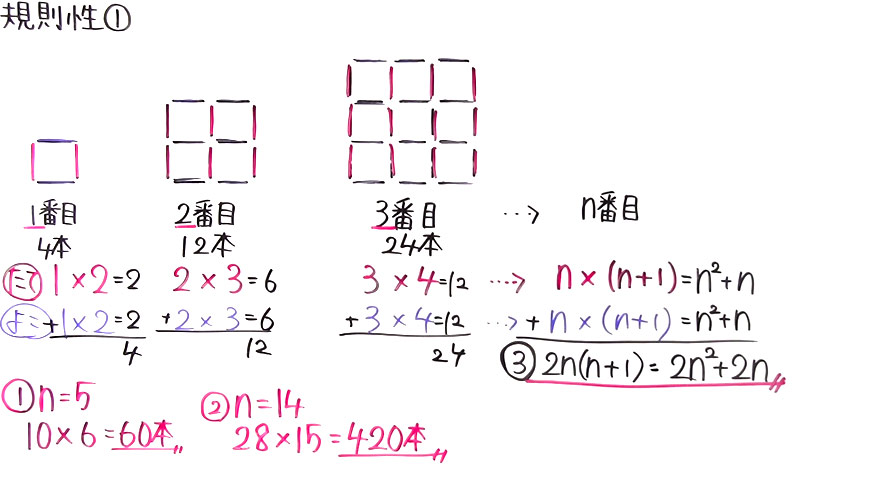 規則性①
1番目 2番目 3番目 … n番目
4本 12本 24本
たて 1×2=2 2×3=6 3×4=12 … n×(n+1)=n²+n
よこ +1×2=2 +2×3=6 +3×4=12 … +n×(n+1)=n²+n
4 12 24 ③ 2n(n+1)=2n²+2n〃
① n=5 ② n=14
10×6=60本〃 28×15=420本〃